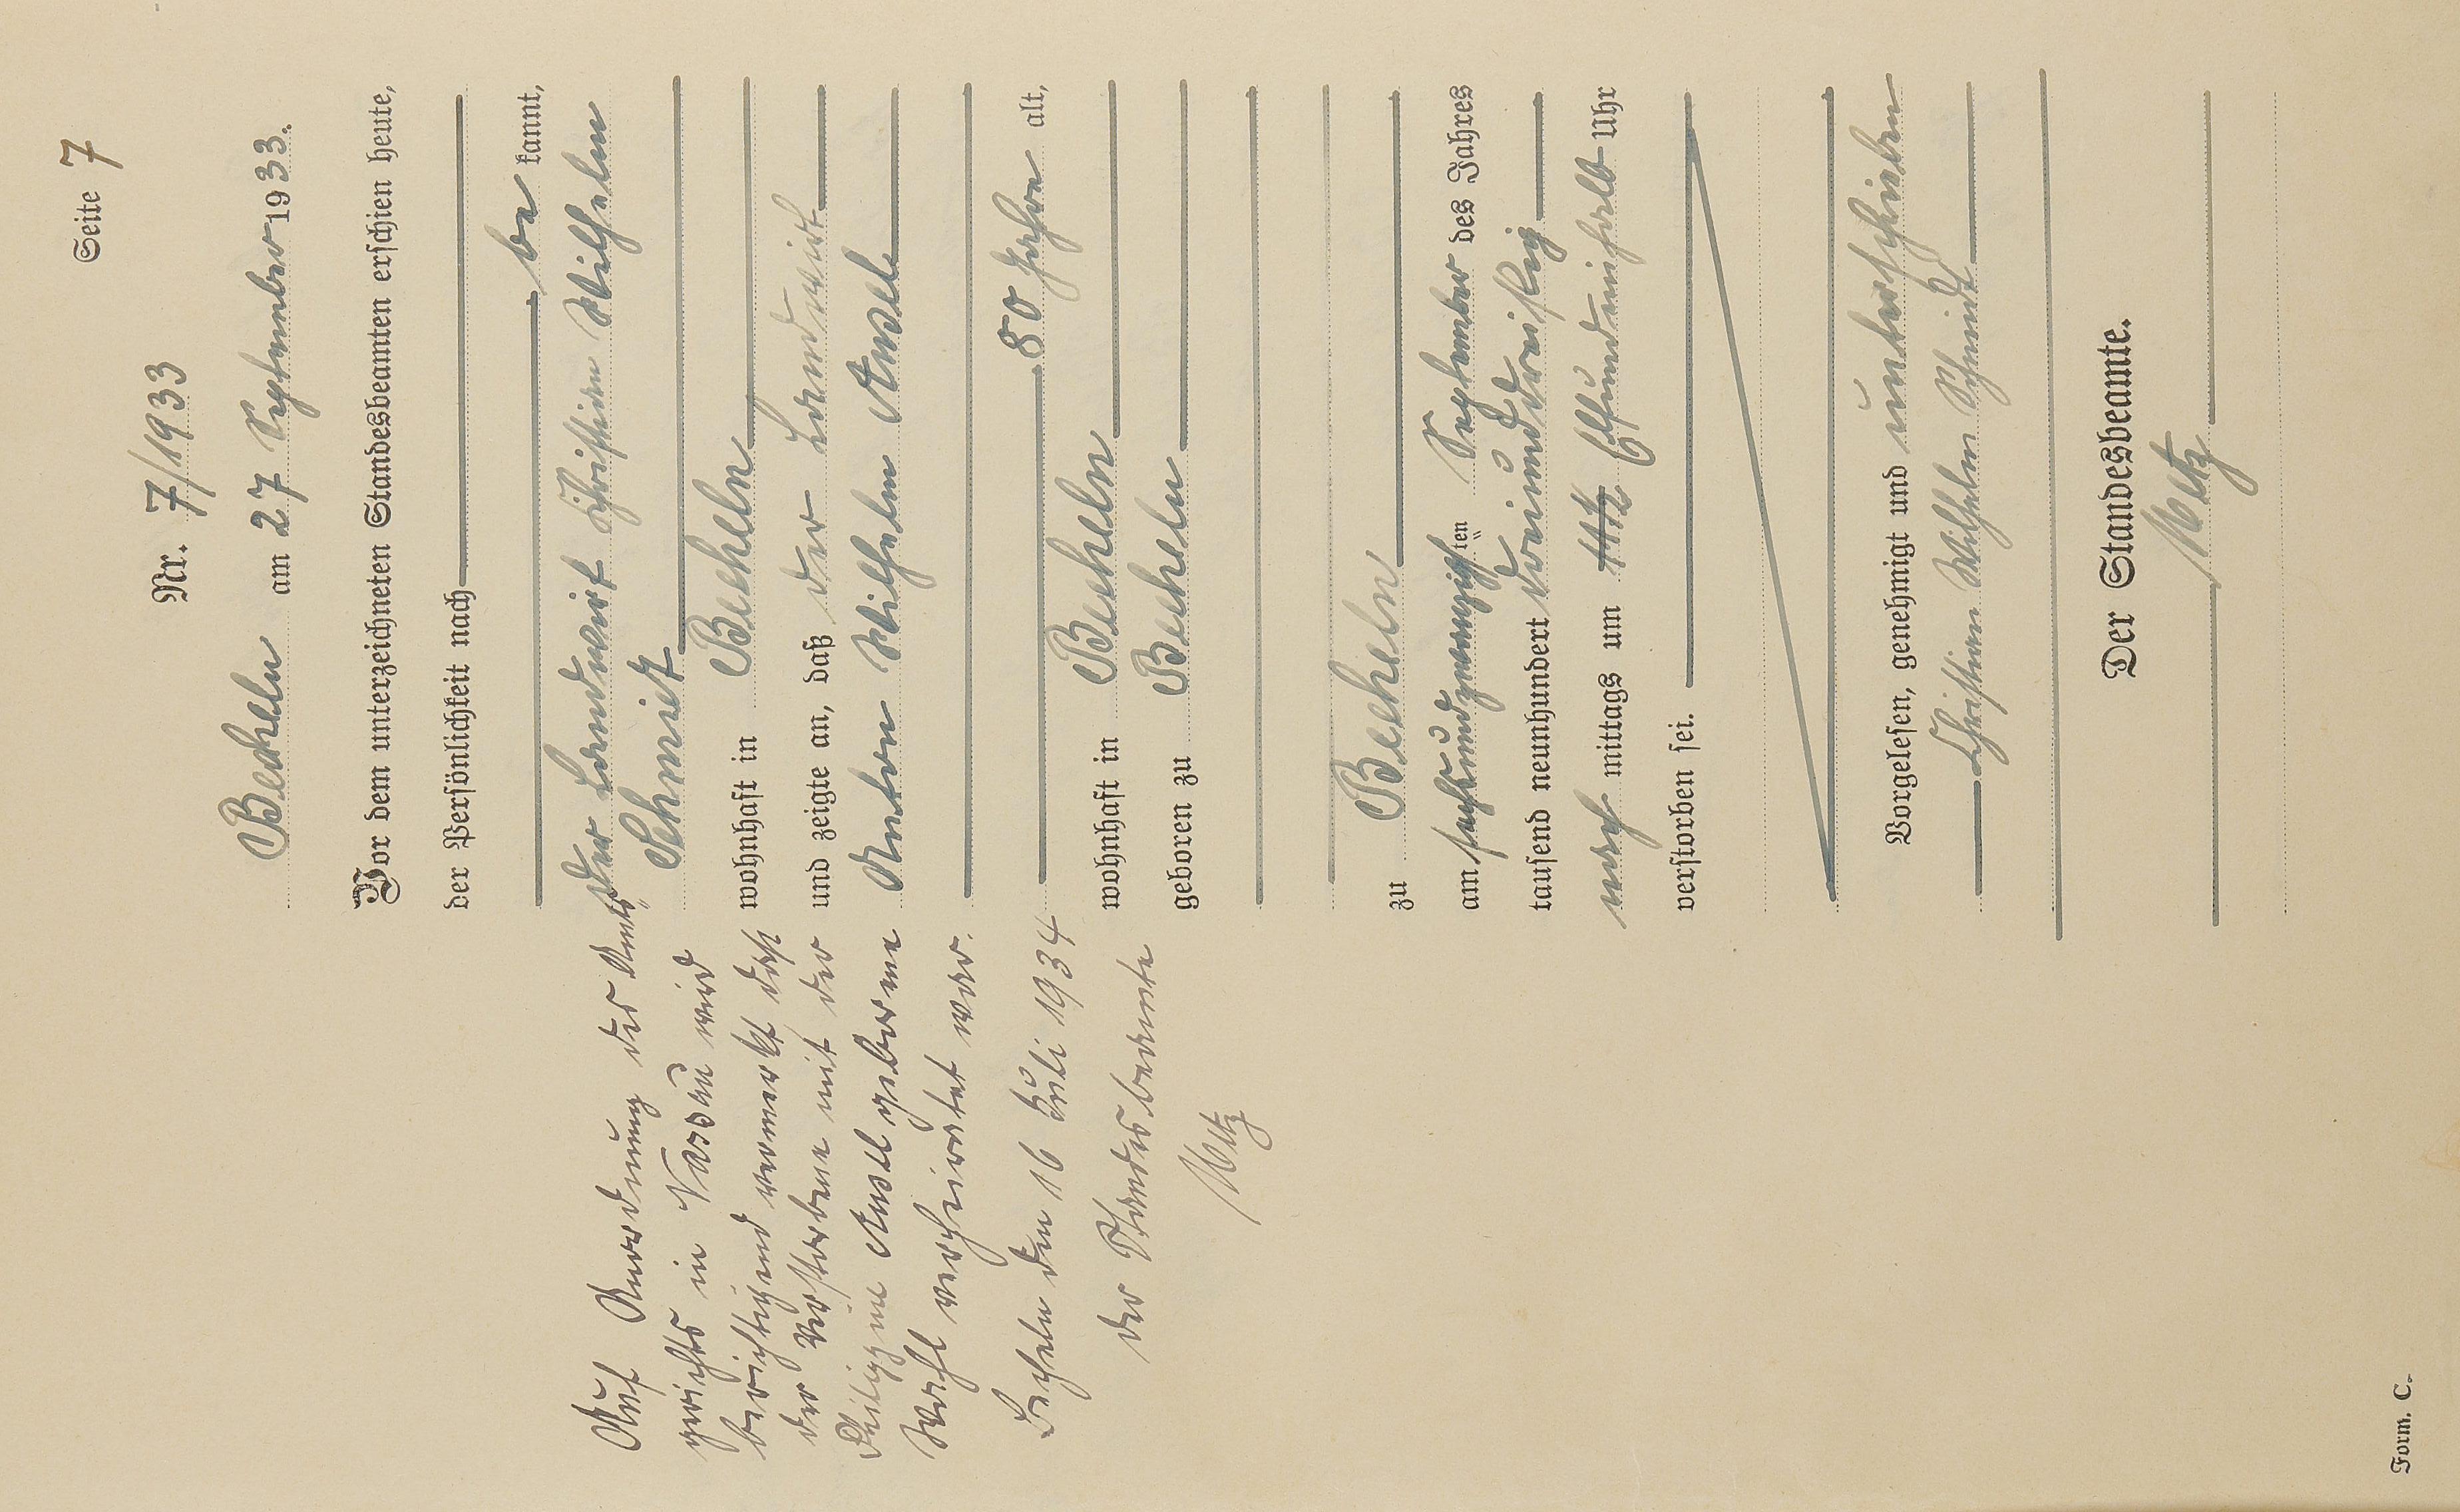 Seite 7
Nr. 7/1933
Becheln am 27 September 1933.
Vor dem unterzeichneten Standesbeamten erschien heute,
der Persönlichkeit nach
be kannt,
der Landwirt Christian Wilhelm
Schmidt
wohnhaft in Becheln
und zeigte an, daß der Landwirt
Anton Wilhelm
80 Jahre alt,
wohnhaft in Becheln
geboren zu Becheln
zu Becheln
am ten September des Jahres
tausend neunhundert dreiunddreißig
nach mittags um Elfundeinhalb Uhr
verstorben sei.
Vorgelesen, genehmigt und unterschrieben
Christian Wilhelm Schmidt
Der Standesbeamte.
Metz
Auf Anordnung des Amts"
gerichts in Nassau wird
berichtigend vermerkt daß
der Verstorbene mit der
geborene
verheiratet war.
Becheln den 16 Juli 1934
der Standesbeamte
Metz
Form. C.